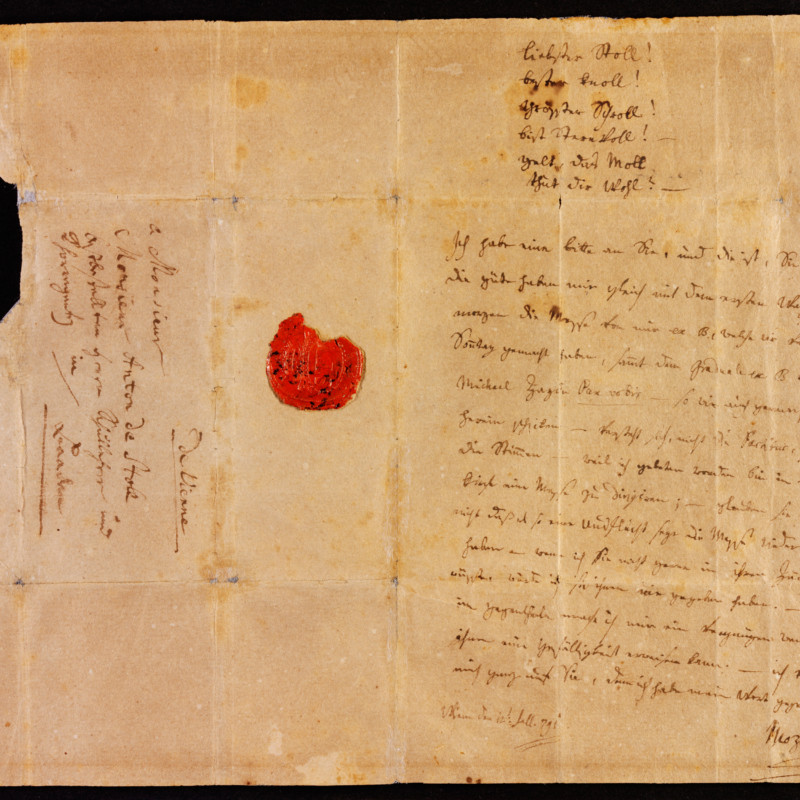 liebster Stoll!
bester knoll!
grösster Schroll!
bist Sternvoll! —
gelt, das Moll
thut dir Wohl? —
Ich habe eine bitte an Sie, und die ist, Sie
die güte haben mir gleich mit dem ersten Wa
morgen die Messe von mir ex B, welche wir v
Sonntag gemacht haben, samt dem Graduale ex B
Michael Haydn Pax vobis — so wir auch gemacht,
herein schicken — versteht sich, nicht die Partitur,
die Stimmen — weil ich gebeten worden bin in
kirche eine Messe zu dirigiren; — glauben Sie
nicht daß es so eine Ausflucht seye die Messe wieder
haben — wenn ich Sie nicht gerne in ihren Hän
wüsste, würde ich sie ihnen nie gegeben haben. —
im gegentheile mache ich mir ein vergnügen wen
ihnen eine Gefälligkeit erweisen kann. — ich
mich ganz auf Sie, denn ich habe mein Wort gege
Wien den 12t Jull. 791
Moz
à Monsieur
Monsieur Anton de Stoll
in
Baaden
de Vienne